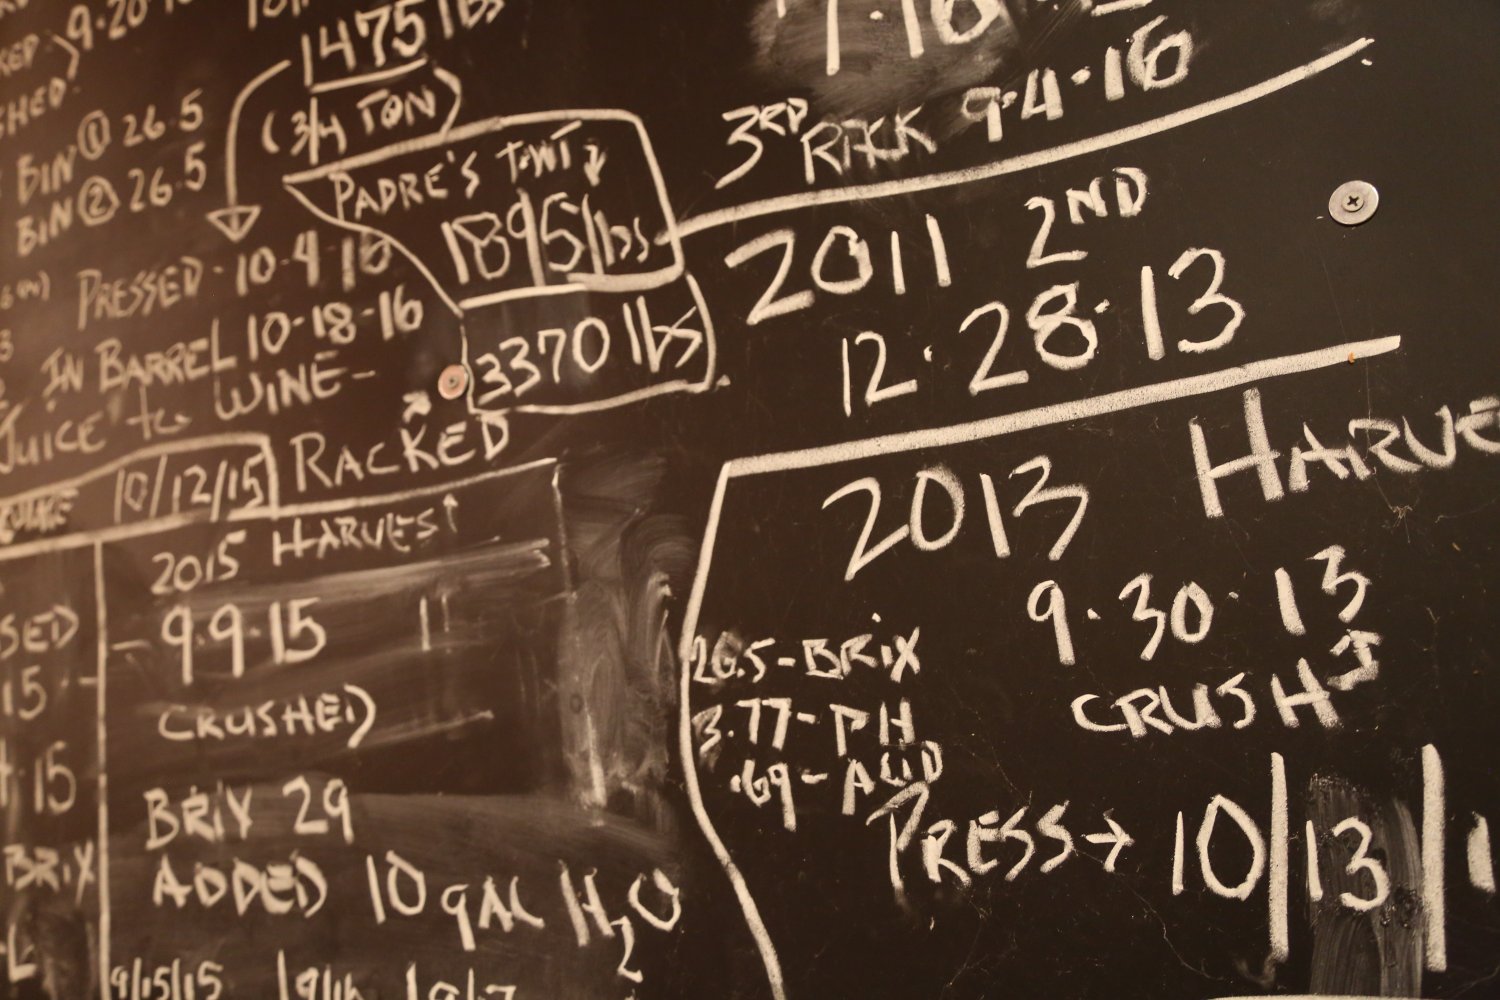 9-20-
1475 lbs
(3/4 TON)
BIN ① 26.5
BIN ② 26.5
PADRE'S T.WT
1895 lbs
3370 lbs
PRESSED - 10-4-16
IN BARREL 10-18-16
JUICE to WINE-
RACKED
10/12/15
2015 HARVEST
- 9.9.15
CRUSHED
BRIX 29
ADDED 10 gAL H2O
9/15/15
15
15
BRIX
7.16
3RD RACK 9.4.16
2011 2ND
12.28.13
2013 HARVE
9.30.13
CRUSH
26.5-BRIX
3.77-PH
.69-ACID
PRESS→ 10/13/1